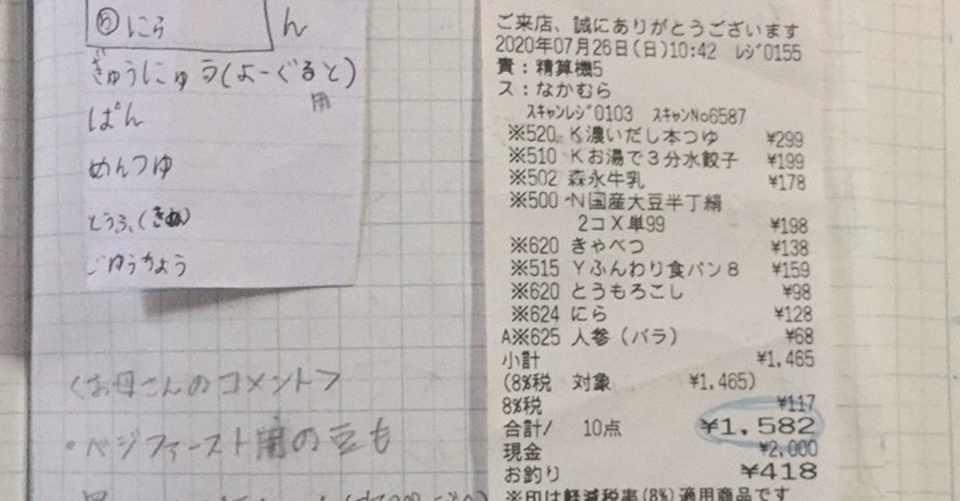 う にら
ん
ぎゅうにゅう(よーぐると)
用
ぱん
めんつゆ
とうふ(きぬ)
ごうかよう
<お母さんのコメント>
・ベジファースト用の豆も
ご来店、誠にありがとうございます
2020年07月26日(日)10:42 レジ0155
責:精算機5
ス:なかむら
スキャンレジ0103 スキャンNo6587
※520 K濃いだし本つゆ ¥299
※510 Kお湯で3分水餃子 ¥199
※502 森永牛乳 ¥178
※500 N国産大豆半丁絹
2コX単99 ¥198
※620 きゃべつ ¥138
※515 Yふんわり食パン8 ¥159
※620 とうもろこし ¥98
※624 にら ¥128
A※625 人参(バラ) ¥68
小計 ¥1,465
(8%税 対象 ¥1,465)
8%税 ¥117
合計/ 10点 ¥1,582
現金 ¥2,000
お釣り ¥418
※印は軽減税率(8%)適用商品です